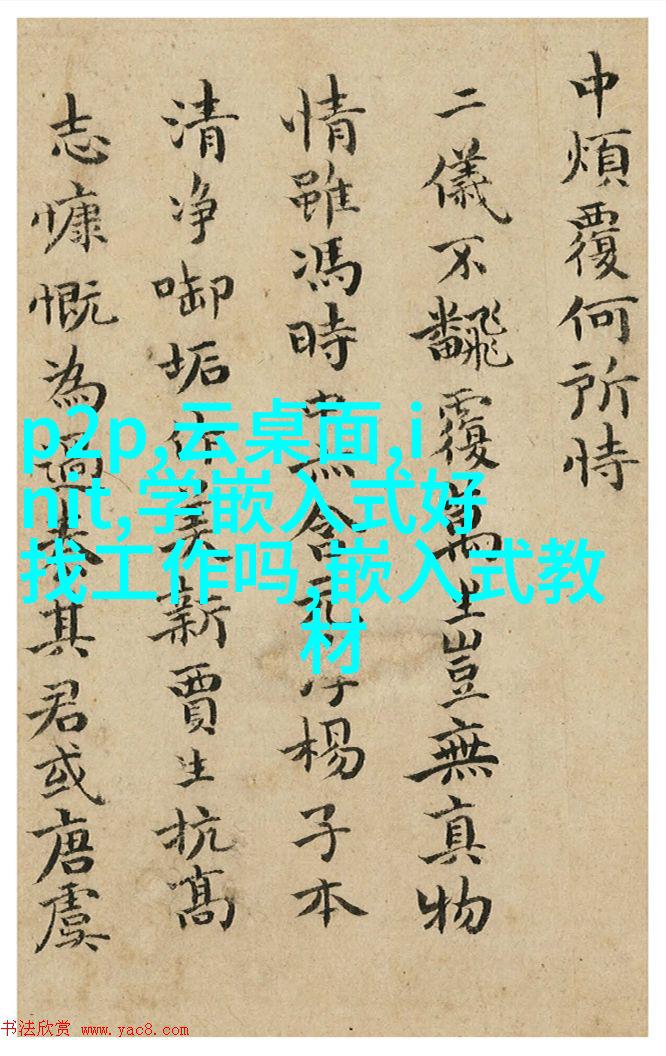 中煩覆何所恃
二儀不飜覆萬生豈無真物
情雖馮時中無含楊子本
清净啣垢作美新賈生抗高
志慷慨為過秦其君或唐虞
p2p,云桌面,i
nit,学嵌入式好
找工作吗,嵌入式教
材
书法欣赏 www.yac8.com